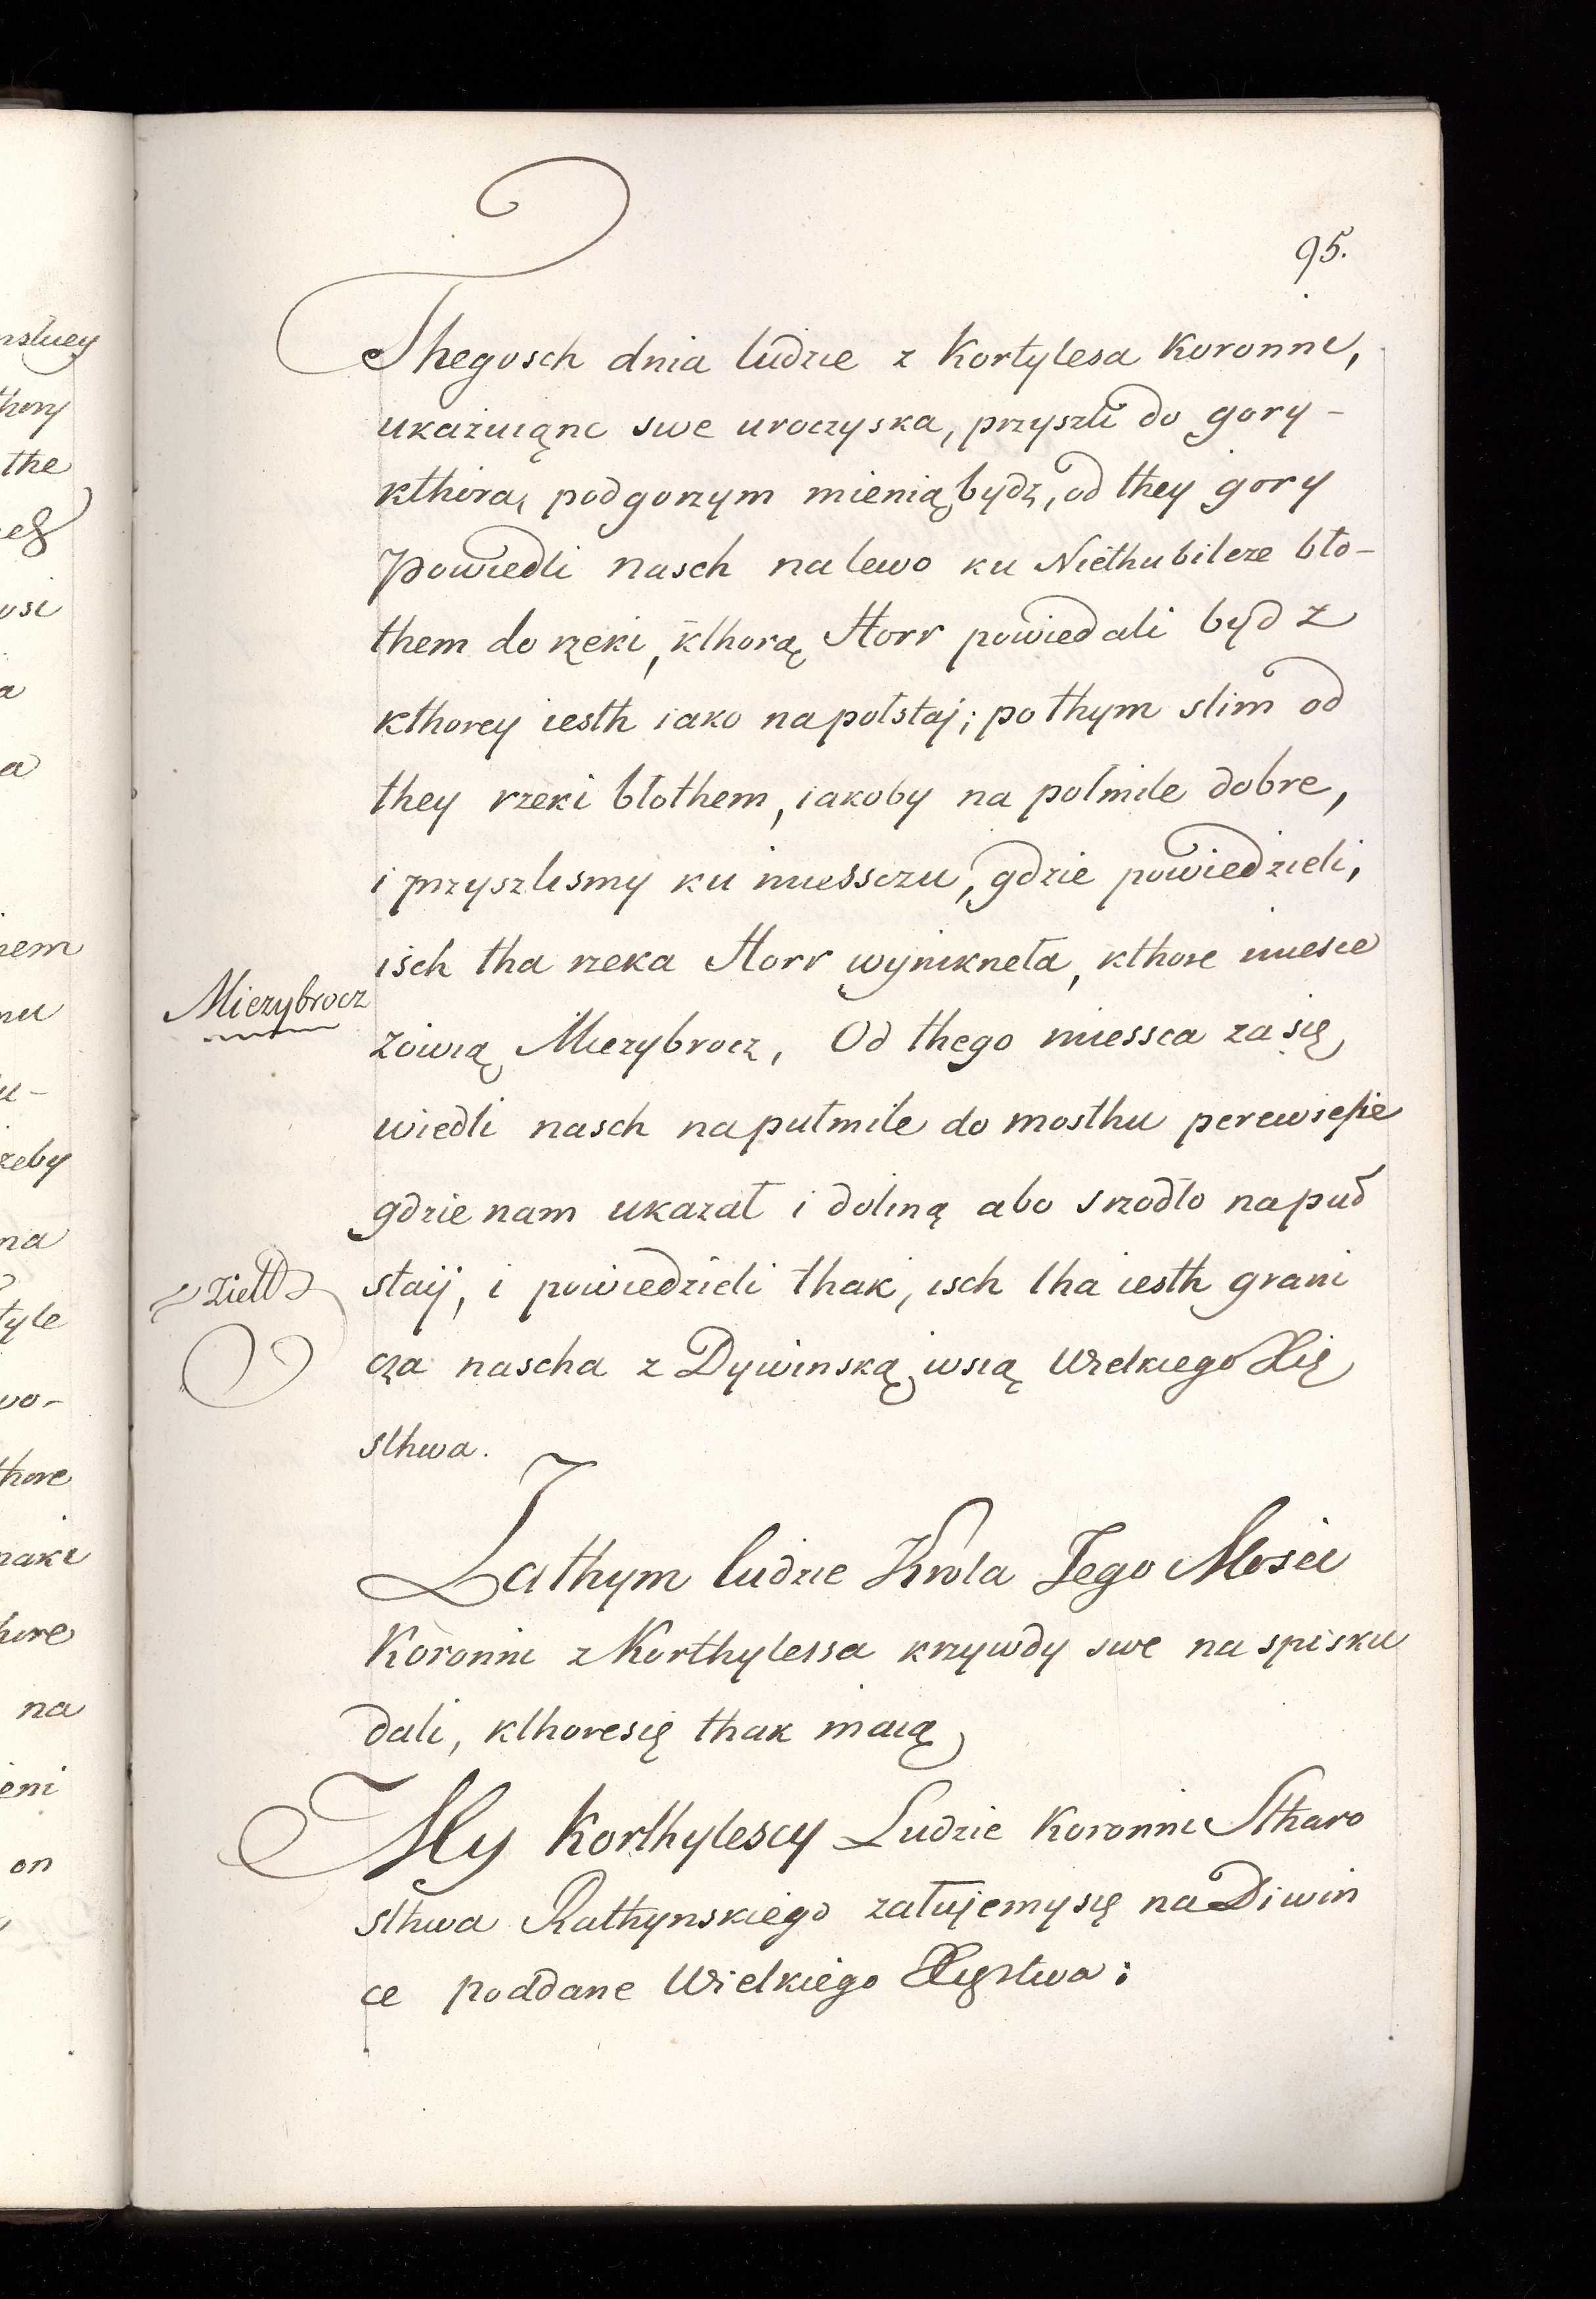 95.
Thegosch dnia ludzie z Kortylesa Koronni,
ukazuiąnc swe uroczyska, przyszli do gory -
kthora, podgorzym mienią bydz, od they gory
Powiedli nasch na lewo ku Niethubilcze bło-
them do rzeki, kthorą Horr powiedali byd z
kthorey iesth iako na połstaj; po thym slim od
they rzeki błothem, iakoby na połmile dobre,
i przyszlismy ku miessczu, gdzie powiedzieli,
isch tha rzeka Horr wynikneła, kthore miesce
Miezybrocz
zowią Miezybrocz, Od thego miessca za się
wiedli nasch na pułmile do mosthu perewisṡie
gdzie nam ukazał i doliną abo srzodło na puł
staij, i powiedzieli thak, isch tha iesth grani
cza nascha z Dywinską wsią Wielkiego Xię
sthwa.
Zathym ludzie Krola Jego Mosci
Koronni z Korthylessa krzywdy swe na spisku
dali, kthore się thak maią
My Korthylescy Ludzie Koronni Stharo
sthwa Rathynskiego załujemy się na Diwin
ce poddane Wielkiego Xięstwa:
nsluey
thory
the
osi
a
a
nem
mu
u-
zeby
na
tyle
wo-
thore
naki
hore
na
eni
on